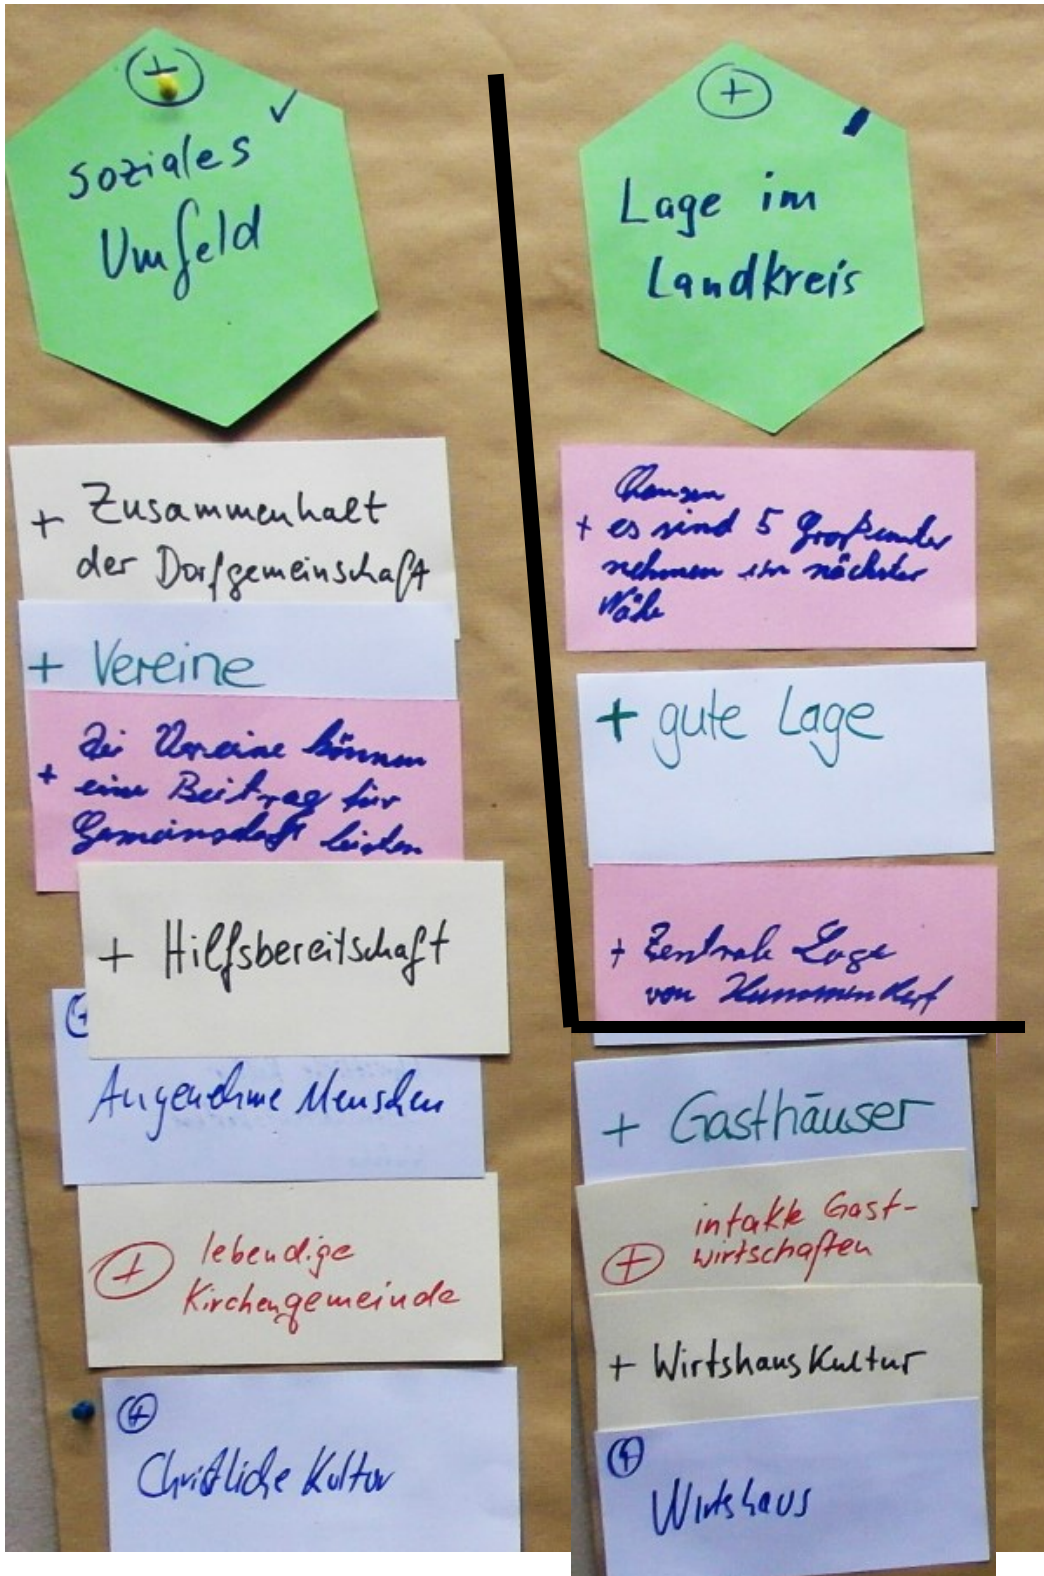 +
soziales
Umfeld
+ Zusammenhalt
der Dorfgemeinschaft
+ Vereine
die Vereine können
+ eine Beitrag für
Gemeinschaft leisten
+ Hilfsbereitschaft
+
Angenehme Menschen
+ lebendige
Kirchengemeinde
+
Christliche Kultur
+
Lage im
Landkreis
+ es sind 5 Großunter
nehmen in nächster
Nähe
+ gute Lage
+ Zentrale Lage
von
+ Gasthäuser
intakte Gast-
+ wirtschaften
+ Wirtshauskultur
+
Wirtshaus